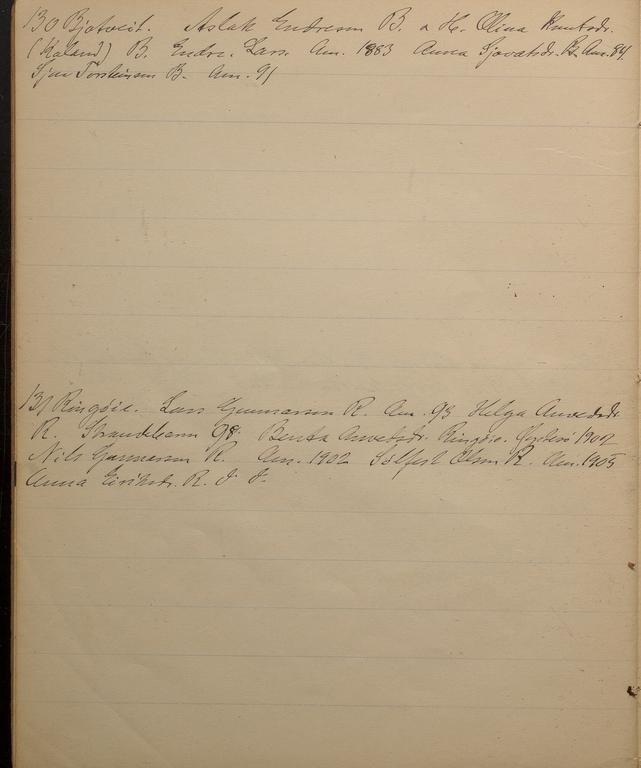 130 Bjotveit. Aslak Endresen B. a H. Olina Knutsdr.
(Røland) B. Endre Lars. Am. 1883 Anna Sjovatsdr. B. Am. 84.
Sjur Torsteinsen B. Am. 91
131 Ringøie. Lars Gunnarsen R. Am. 93 Helga Amundsdr.
R. Strandebarm 98. Berta Amundsdr. Ringøie. 1902
Nils Gunnarsen R. Am. 1902 Solfest Olsen R. Am. 1905
Anna Eiriksdr. R. d d.